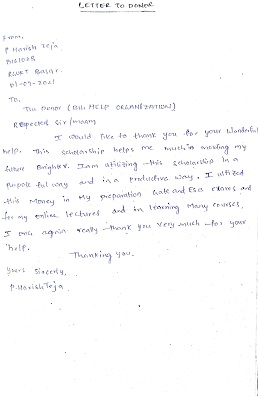 LETTER TO DONOR
From,
P Harish Teja
RGUKT BASAR.
01-09-2021
To,
The Donor (BIG HELP ORGANIZATION)
Respected Sir/Madam
I would like to thank you for your Wonderful
help. This scholarship helps me much in making my
future Brighter. I am utilizing this scholarship in a
purpose ful way and in a productive way. I utilized
this Money in My preparation Gate and Eses exams and
for my online lectures and in learning Many courses.
I once again really thank you very much for your
help.
Thanking you.
Yours Sincerly,
P.Harish Teja.